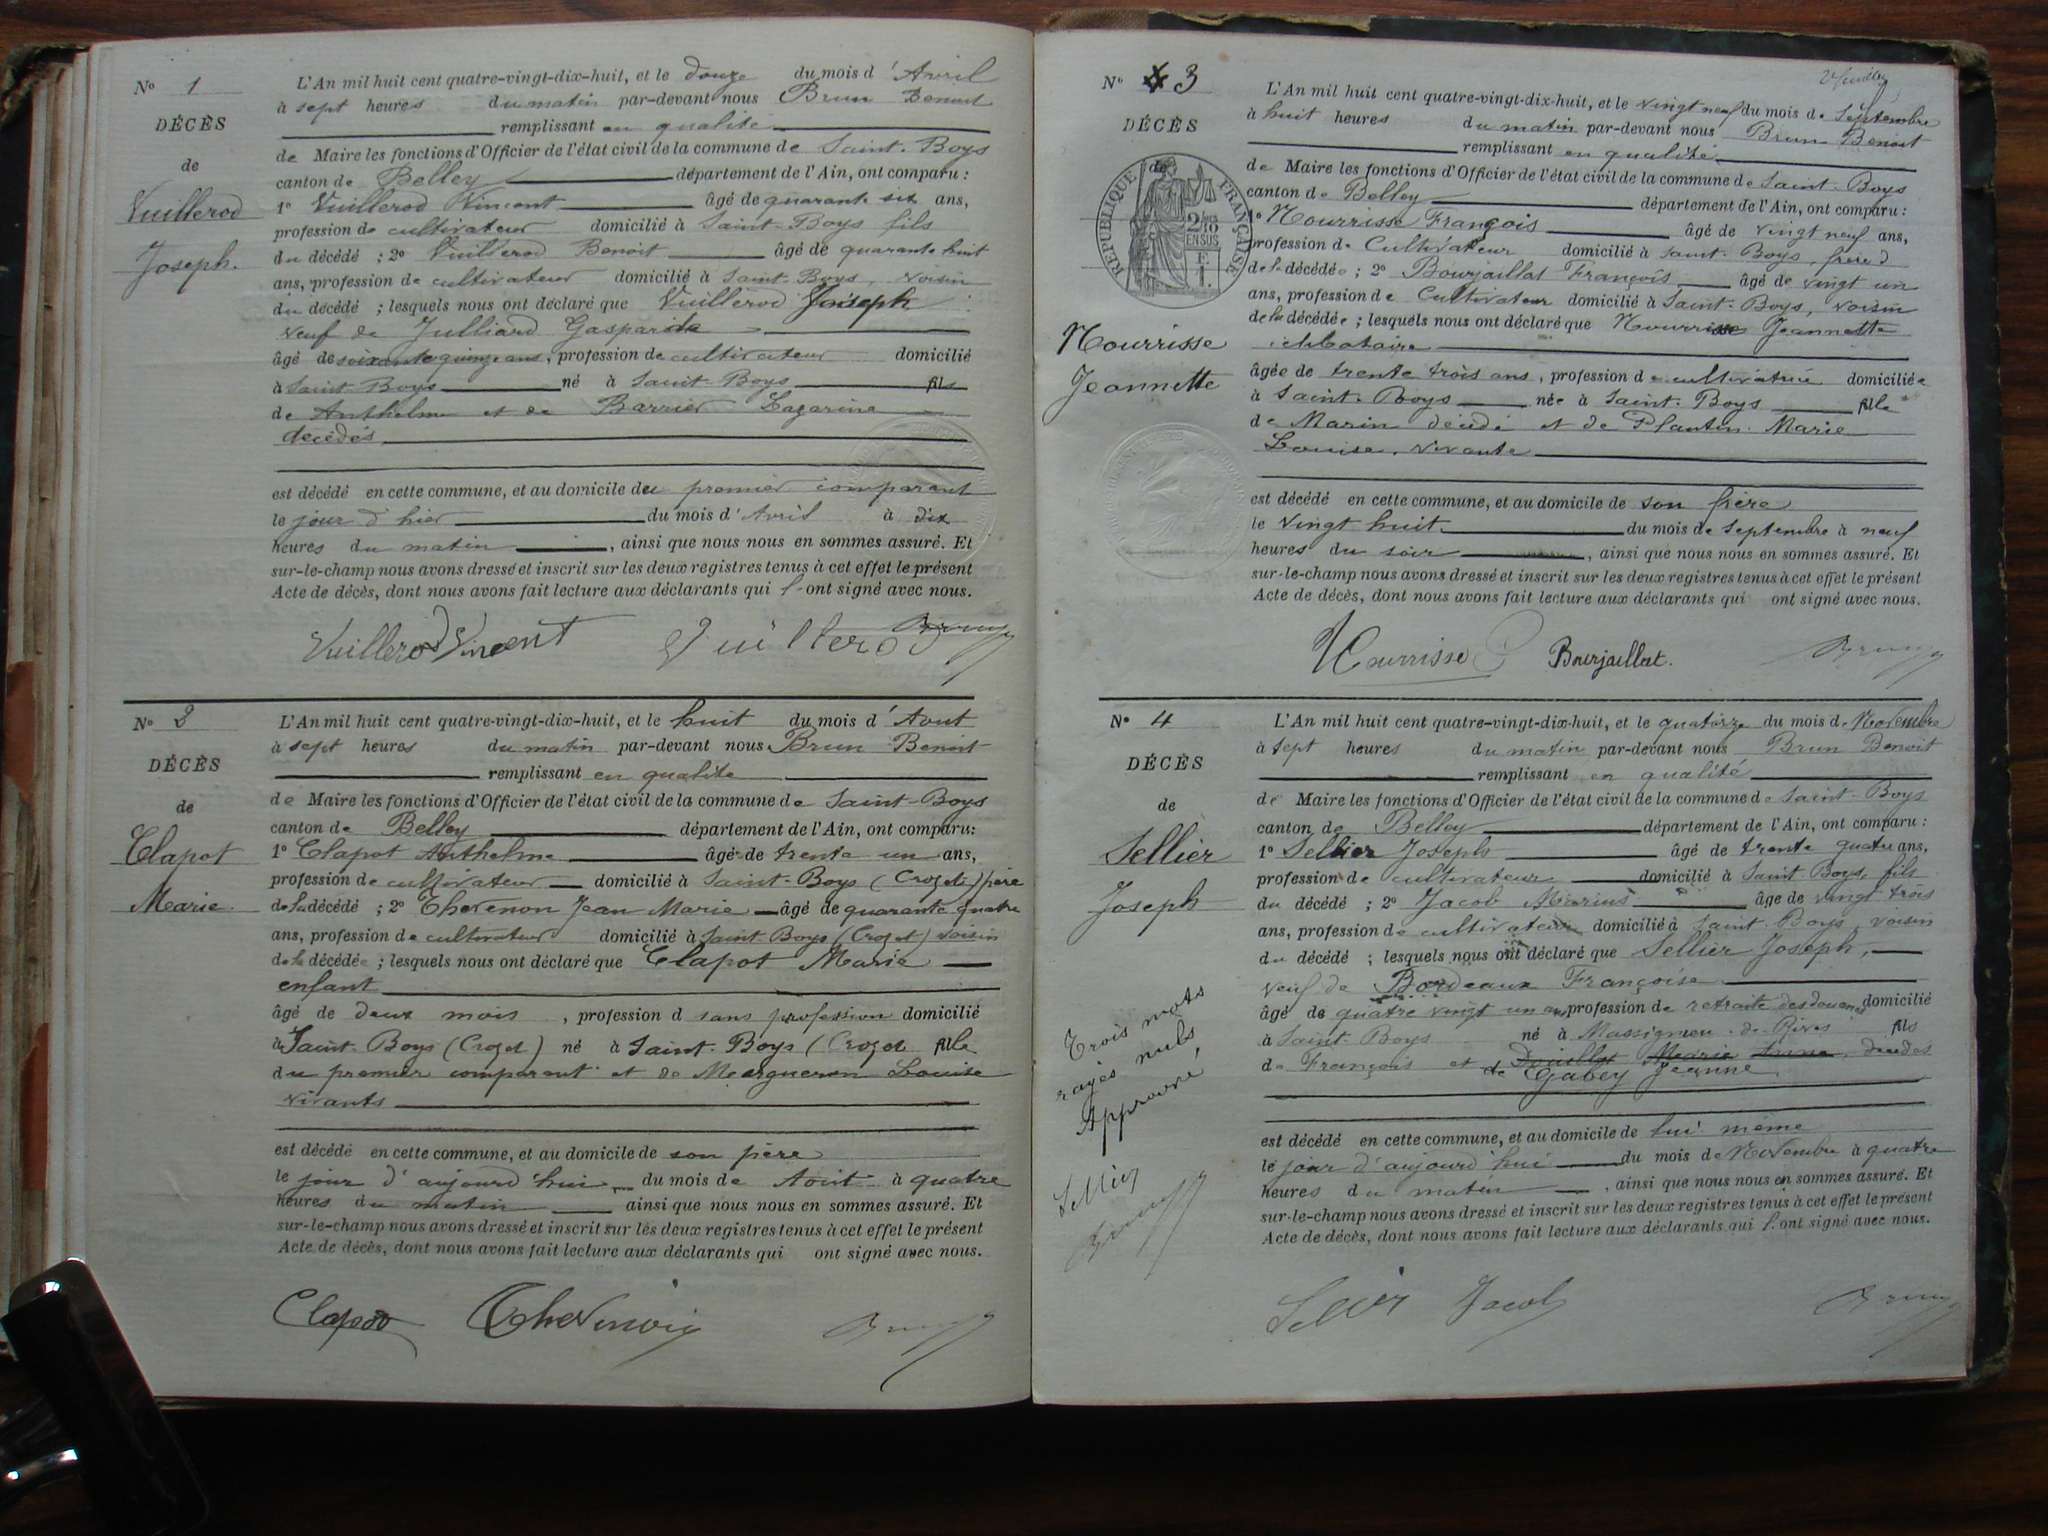 N° 1
DÉCÈS
de
Vuillerod
Joseph.
L'An mil huit cent quatre-vingt-dix-huit, et le douze du mois d'Avril
à sept heures du matin par-devant nous Brun Benoit
remplissant en qualité
de Maire les fonctions d'Officier de l'état civil de la commune de Saint-Boys
canton de Belley département de l'Ain, ont comparu :
1° Vuillerod Vincent âgé de quarante six ans,
profession de cultivateur domicilié à Saint-Boys fils
du décédé ; 2° Vuillerod Benoit âgé de quarante huit
ans, profession de cultivateur domicilié à Saint-Boys, voisin
du décédé ; lesquels nous ont déclaré que Vuillerod Joseph
veuf de Julliard Gasparde
âgé de soixante quinze ans, profession de cultivateur domicilié
à Saint-Boys né à Saint-Boys fils
de Anthelme et de Barrier Lazarine
décédés
est décédé en cette commune, et au domicile du premier comparant
le jour d'hier du mois d'Avril à dix
heures du matin, ainsi que nous nous en sommes assuré. Et
sur-le-champ nous avons dressé et inscrit sur les deux registres tenus à cet effet le présent
Acte de décès, dont nous avons fait lecture aux déclarants qui l'ont signé avec nous.
Vuillerod Vincent Vuillerod Brun
N° 2
DÉCÈS
de
Clapot
Marie.
L'An mil huit cent quatre-vingt-dix-huit, et le huit du mois d'Aout
à sept heures du matin par-devant nous Brun Benoit
remplissant en qualité
de Maire les fonctions d'Officier de l'état civil de la commune de Saint-Boys
canton de Belley département de l'Ain, ont comparu :
1° Clapot Anthelme âgé de trente un ans,
profession de cultivateur domicilié à Saint-Boys (Crozet) père
de la décédé ; 2° Thevenon Jean Marie âgé de quarante quatre
ans, profession de cultivateur domicilié à Saint-Boys (Crozet) voisin
de la décédée ; lesquels nous ont déclaré que Clapot Marie
enfant
âgé de deux mois, profession d sans profession domicilié
à Saint-Boys (Crozet) né à Saint-Boys (Crozet fille
du premier comparant et de Margueron Louise
vivants
est décédé en cette commune, et au domicile de son père
le jour d'aujourd'hui du mois de Aout à quatre
heures du matin ainsi que nous nous en sommes assuré. Et
sur-le-champ nous avons dressé et inscrit sur les deux registres tenus à cet effet le présent
Acte de décès, dont nous avons fait lecture aux déclarants qui ont signé avec nous.
Clapot Thevenon Brun
N° 3
DÉCÈS
de
RÉPUBLIQUE FRANÇAISE
Nourrisse
Jeannette
L'An mil huit cent quatre-vingt-dix-huit, et le vingt neuf du mois de Septembre
à huit heures du matin par-devant nous Brun Benoit
remplissant en qualité
de Maire les fonctions d'Officier de l'état civil de la commune de Saint-Boys
canton de Belley département de l'Ain, ont comparu :
1° Nourrisse François âgé de vingt neuf ans,
profession de Cultivateur domicilié à Saint-Boys, frère
de la décédée ; 2° Bourjaillat François âgé de vingt un
ans, profession de Cultivateur domicilié à Saint-Boys, voisin
de la décédée ; lesquels nous ont déclaré que Nourrisse Jeannette
célibataire
âgée de trente trois ans, profession de cultivatrice domiciliée
à Saint-Boys née à Saint-Boys fille
de Marin décédé et de Plantin Marie
Louise, vivante
est décédé en cette commune, et au domicile de son frère
le vingt huit du mois de Septembre à neuf
heures du soir, ainsi que nous nous en sommes assuré. Et
sur-le-champ nous avons dressé et inscrit sur les deux registres tenus à cet effet le présent
Acte de décès, dont nous avons fait lecture aux déclarants qui ont signé avec nous.
Nourrisse Bourjaillat. Brun
N° 4
DÉCÈS
de
Sellier
Joseph
Trois mots
rayés nuls
Approuvé,
Sellier
Brun
L'An mil huit cent quatre-vingt-dix-huit, et le quatorze du mois de Novembre
à sept heures du matin par-devant nous Brun Benoit
remplissant en qualité
de Maire les fonctions d'Officier de l'état civil de la commune de Saint-Boys
canton de Belley département de l'Ain, ont comparu :
1° Sellier Joseph âgé de trente quatre ans,
profession de cultivateur domicilié à Saint Boys, fils
du décédé ; 2° Jacob Marius âgé de vingt trois
ans, profession de cultivateur domicilié à Saint Boys voisin
du décédé ; lesquels nous ont déclaré que Sellier Joseph,
veuf de Bordeaux Françoise
âgé de quatre vingt un ans profession de retraité des douanes domicilié
à Saint-Boys né à Massignieu-de-Rives fils
de François et Marie Anne, décédés
de Gabey Jeanne
est décédé en cette commune, et au domicile de lui même
le jour d'aujourd'hui du mois de Novembre à quatre
heures du matin, ainsi que nous nous en sommes assuré. Et
sur-le-champ nous avons dressé et inscrit sur les deux registres tenus à cet effet le présent
Acte de décès, dont nous avons fait lecture aux déclarants qui l'ont signé avec nous.
Sellier Jacob Brun